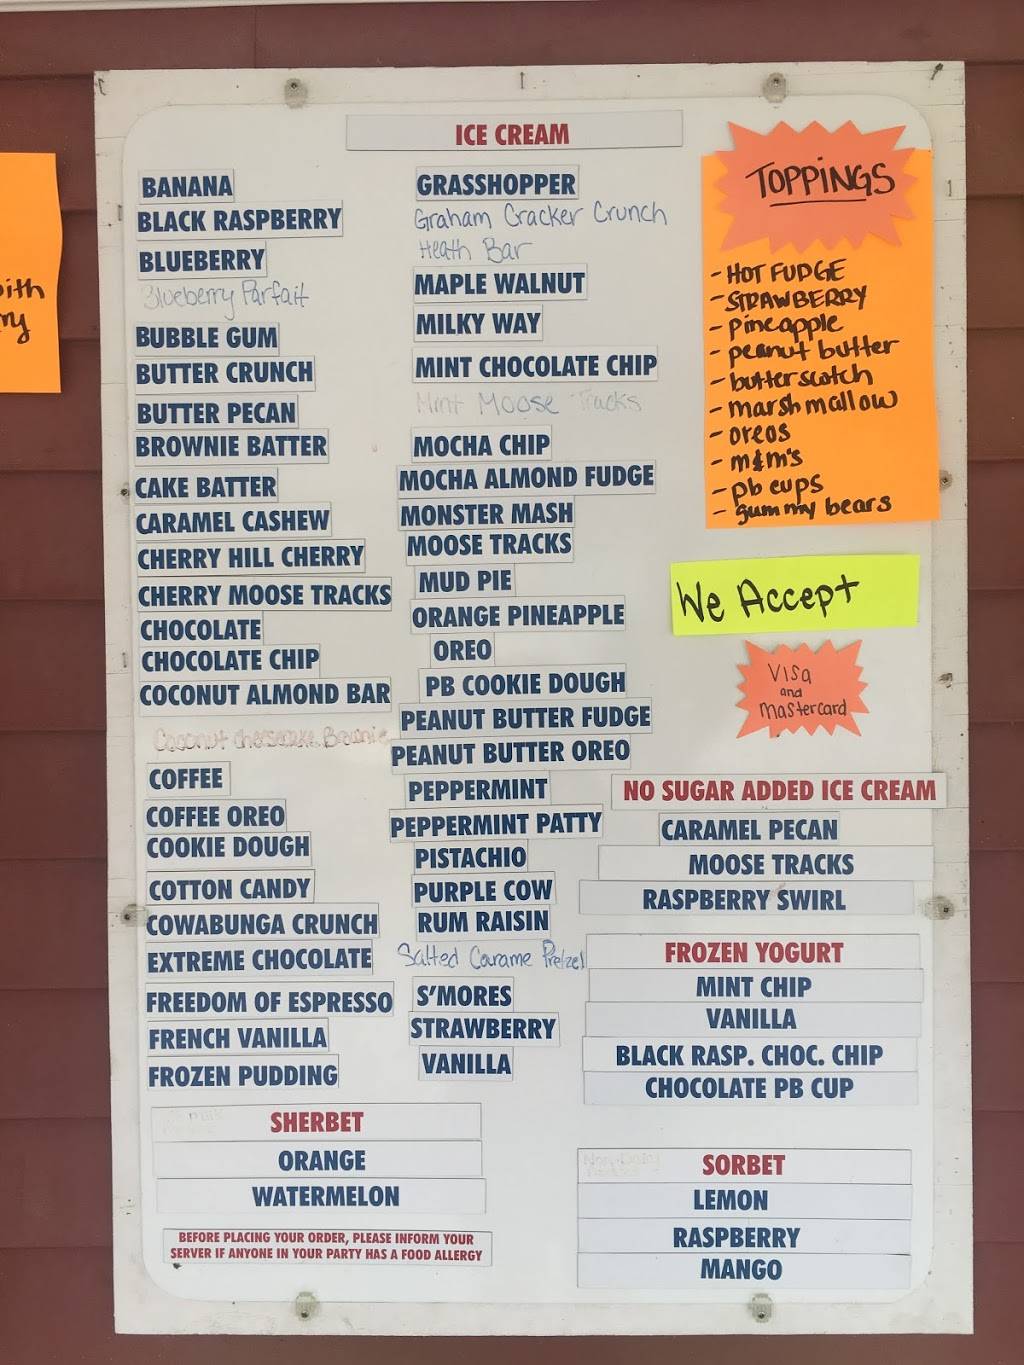 ICE CREAM
BANANA
BLACK RASPBERRY
BLUEBERRY
Blueberry Parfait
BUBBLE GUM
BUTTER CRUNCH
BUTTER PECAN
BROWNIE BATTER
CAKE BATTER
CARAMEL CASHEW
CHERRY HILL CHERRY
CHERRY MOOSE TRACKS
CHOCOLATE
CHOCOLATE CHIP
COCONUT ALMOND BAR
Coconut Cheesecake Brownie
COFFEE
COFFEE OREO
COOKIE DOUGH
COTTON CANDY
COWABUNGA CRUNCH
EXTREME CHOCOLATE
FREEDOM OF ESPRESSO
FRENCH VANILLA
FROZEN PUDDING
GRASSHOPPER
Graham Cracker Crunch
Heath Bar
MAPLE WALNUT
MILKY WAY
MINT CHOCOLATE CHIP
Mint Moose Tracks
MOCHA CHIP
MOCHA ALMOND FUDGE
MONSTER MASH
MOOSE TRACKS
MUD PIE
ORANGE PINEAPPLE
OREO
PB COOKIE DOUGH
PEANUT BUTTER FUDGE
PEANUT BUTTER OREO
PEPPERMINT
PEPPERMINT PATTY
PISTACHIO
PURPLE COW
RUM RAISIN
Salted Carame Pretzel
S'MORES
STRAWBERRY
VANILLA
TOPPINGS
- HOT FUDGE
- STRAWBERRY
- pineapple
- peanut butter
- butterscotch
- marshmallow
- oreos
- m&m's
- pb cups
- gummy bears
We Accept
Visa
and
Mastercard
NO SUGAR ADDED ICE CREAM
CARAMEL PECAN
MOOSE TRACKS
RASPBERRY SWIRL
FROZEN YOGURT
MINT CHIP
VANILLA
BLACK RASP. CHOC. CHIP
CHOCOLATE PB CUP
SHERBET
ORANGE
WATERMELON
Non-Dairy
SORBET
LEMON
RASPBERRY
MANGO
BEFORE PLACING YOUR ORDER, PLEASE INFORM YOUR
SERVER IF ANYONE IN YOUR PARTY HAS A FOOD ALLERGY